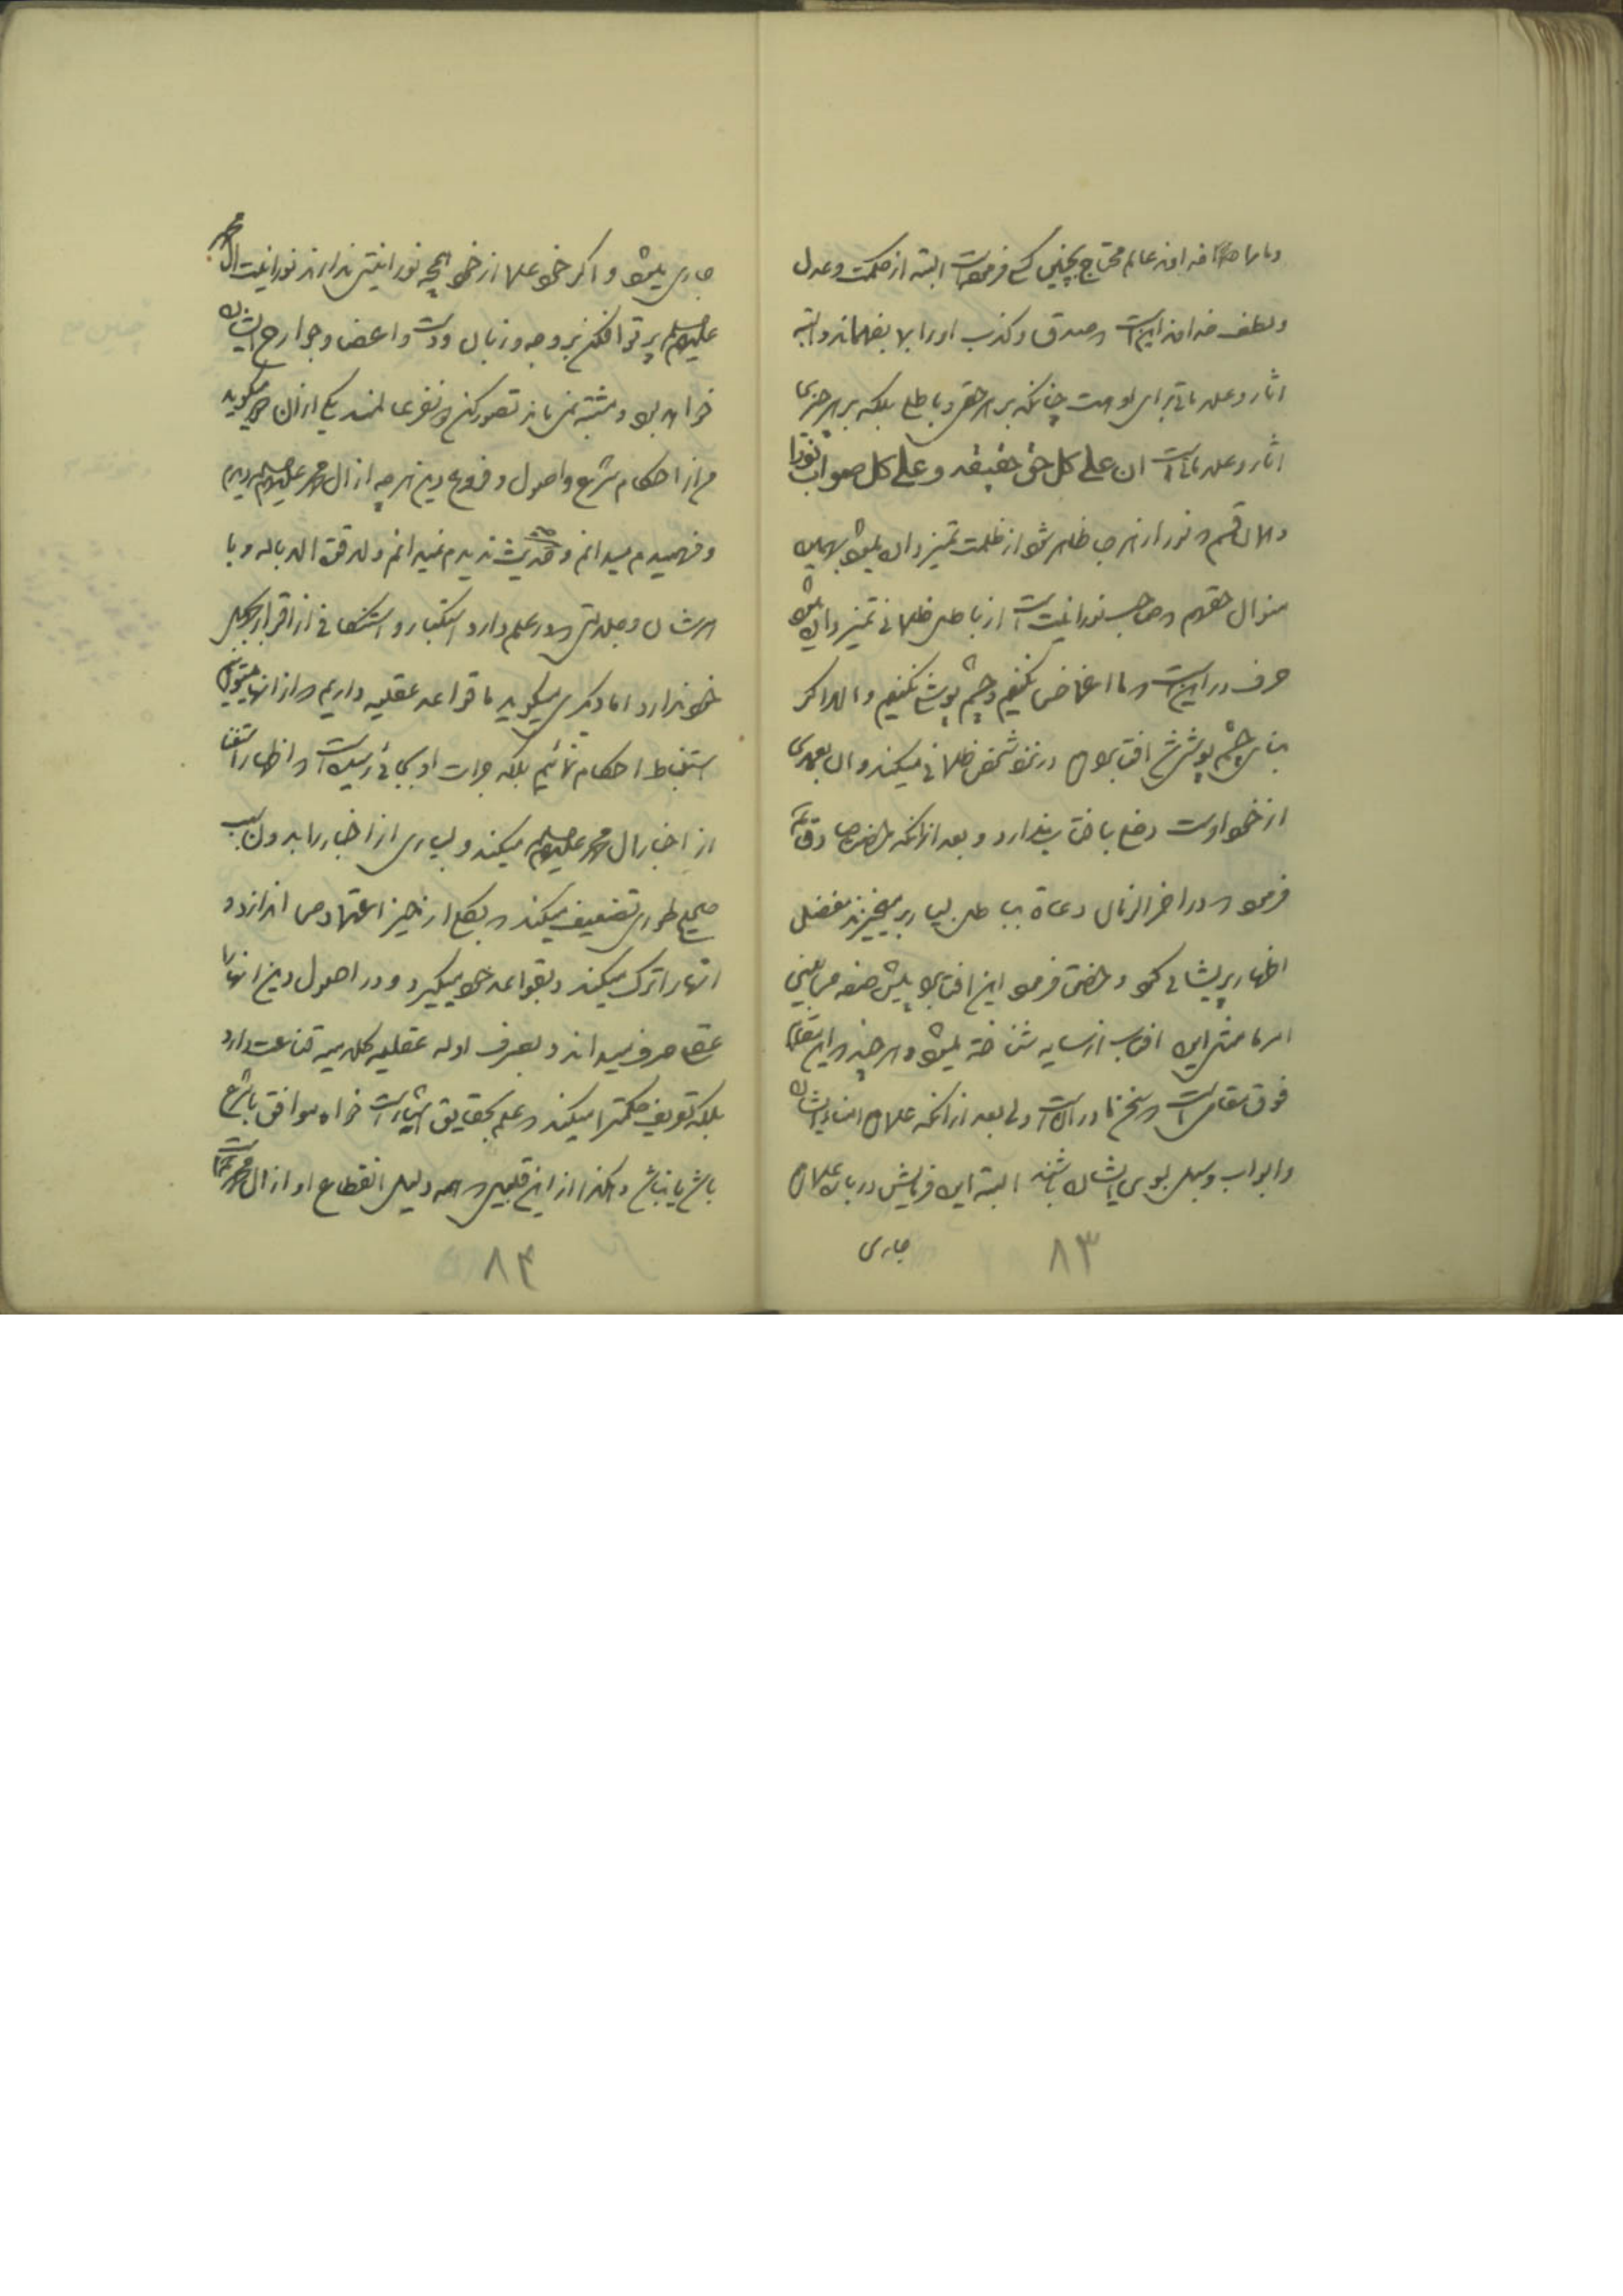 و ما را خداوند عالم محتاج بچنین کسی فرموده است البته از حکمت و عدل
و لطف خداوند این است که صدق و کذب او را بما بفهماند و البته
اثار و علاماتی برای او هست چنانکه بر هر حقی و باطلی بلکه بر هر چیزی
اثار و علاماتی است ان علی کل حق حقیقه و علی کل صواب نورا
و همان قسم که نور از هر جا ظاهر شود از ظلمت تمیز داده میشود بهمین
منوال حق هم که صاحب نورانیت است از باطل ظلمانی تمیز داده میشود
حرف در این است که ما اغماض نکنیم و چشم پوشی نکنیم و الا اگر
بنای چشم پوشی شد افتاب هم در نزد شخص ظلمانی میکند و ان بعمدی
از خود اوست دخلی باختیار ندارد و بعد از انکه حضرت صادق
فرمود که در اخر الزمان دعاة بباطل بسیار بر میخیزند مفضل
اظهار پریشانی کرد و حضرت فرمود این افتاب را پیش صفه می بینی
امر ما مثل این افتاب از سایه شناخته میشود و هر چند که این مقام
فوق مقامی است که سخن ما در ان است ولی بعد از انکه علماء امنای ایشان
و ابواب و سبیل بسوی ایشان باشند البته این فرمایش درباره علماء
جاری
۸۳
جاری میشود و اگر خود علما از خود هیچ نورانیتی ندارند نورانیت ال محمد
علیهم السلم پرتو افکن بر وجه و زبان و دست و اعضا و جوارح ایشان
خواهد بود و مشتبه نمی ماند تصور کن دو نفر عالمند یکی از ان دو میگوید
من از احکام شرع و اصول و فروع دین هر چه از ال محمد علیهم السلم دیدم
و فهمیدم میدانم و هر حدیث ندیدم نمیدانم و لا قوة الا بالله و با
هر شان و جلالتی که در علم دارد استکبار و استنکافی از اقرار بجهل
خود ندارد اما دیگری میگوید ما قواعد عقلیه داریم که از انها میتوانیم
استنباط احکام نمائیم بلکه جرات او بجائی رسیده است که اظهار استغنا
از اخبار ال محمد علیهم السلم میکند و بسیاری از اخبار را بدون سبب
صحیح طوری تضعیف میکند که بکلی از حیز اعتماد می اندازد و
انها را ترک میکند و بقواعد خود میگیرد و در اصول دین انها را
عقلی صرف میداند و بصرف ادله عقلیه کلامیه قناعت دارد
بلکه تعریف حکمت را میکند که علم بحقایق اشیاء است خواه موافق با شرع
باشد یا نباشد و هکذا از این قبیل که همه دلیل انقطاع او از ال محمد است
۸۴